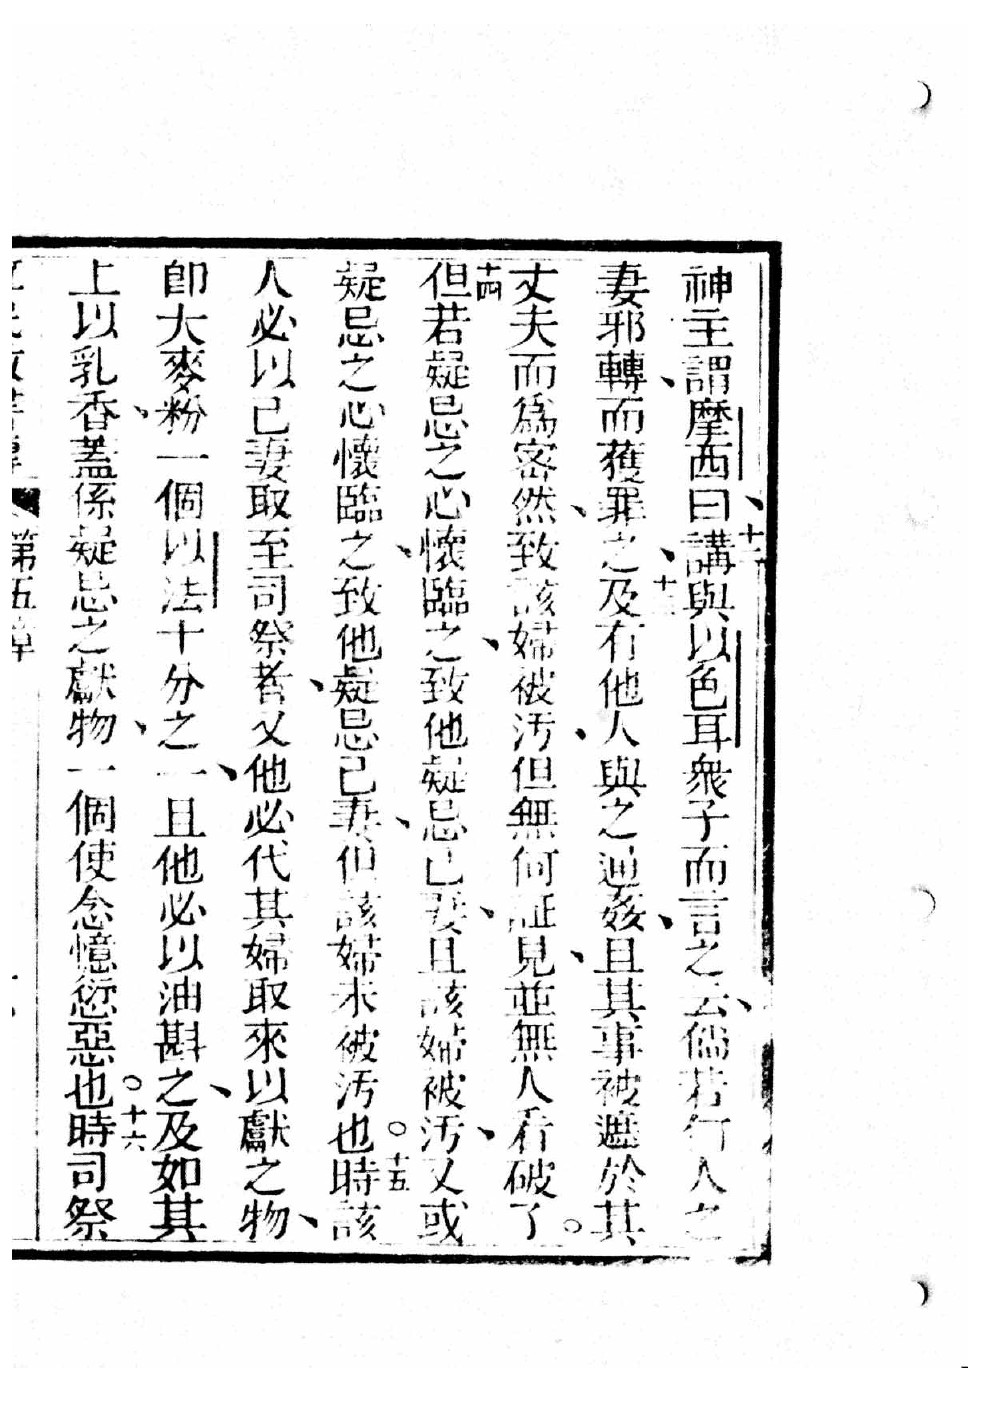 神主謂摩西曰、十二講與以色耳衆子而言之云、儻若行人之
妻邪轉、而獲罪之、十三及有他人與之通姦、且其事被遮於其
丈夫而爲密然、致該婦被汚、但無何証見、並無人看破了。
十四但若疑忌之心懷臨之、致他疑忌己妻、且該婦被汚、又或
疑忌之心懷臨之、致他疑忌己妻、但該婦未被汚也。十五時該
人必以己妻取至司祭者、又他必代其婦取來以獻之物、
卽大麥粉一個以法十分之一、且他必以油斟之、及如其
上以乳香、蓋係疑忌之獻物、一個使念憶愆惡也。十六時司祭
第五章